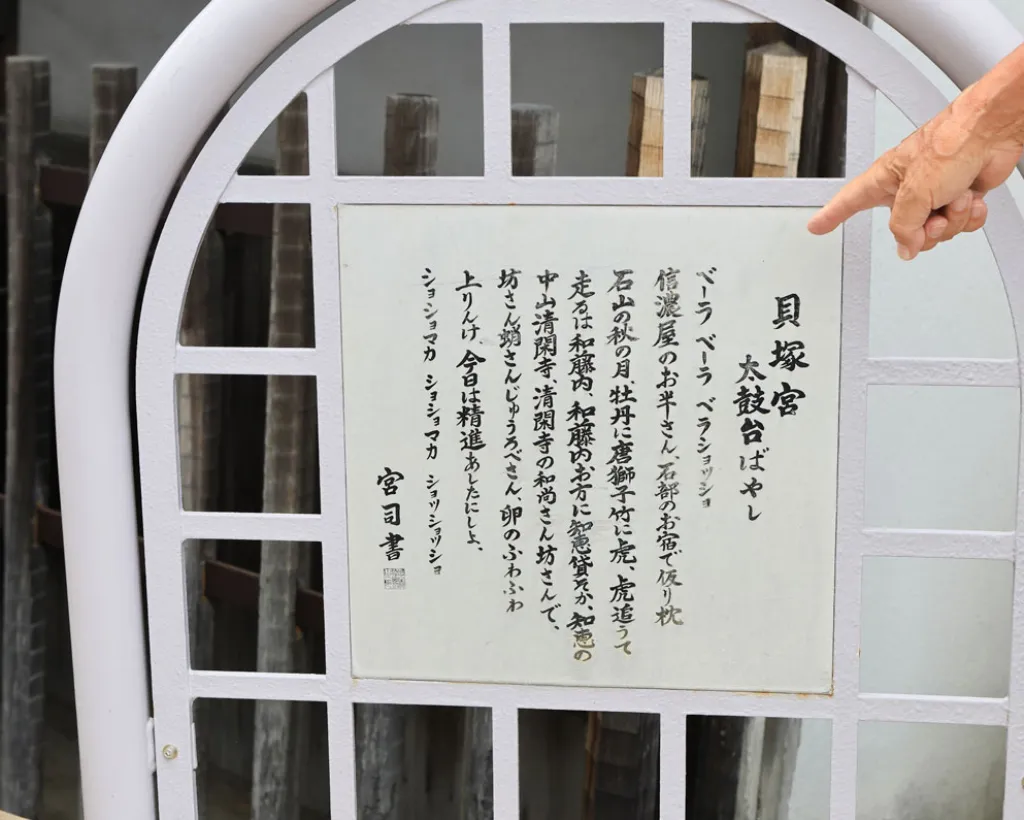 貝塚宮
太鼓台ばやし
ベーラ ベーラ ベラショッショ
信濃屋のお半さん、石部のお宿で仮り枕
石山の秋の月、牡丹に唐獅子竹に虎、虎追うて
走るは和藤内、和藤内お方に知恵貸そか、知恵の
中山清閑寺、清閑寺の和尚さん坊さんで、
坊さん蛸さんじゅうろべさん、卵のふわふわ
上りんけ 今日は精進あしたにしよ、
ショショマカ ショショマカ ショッショッショ
宮司書